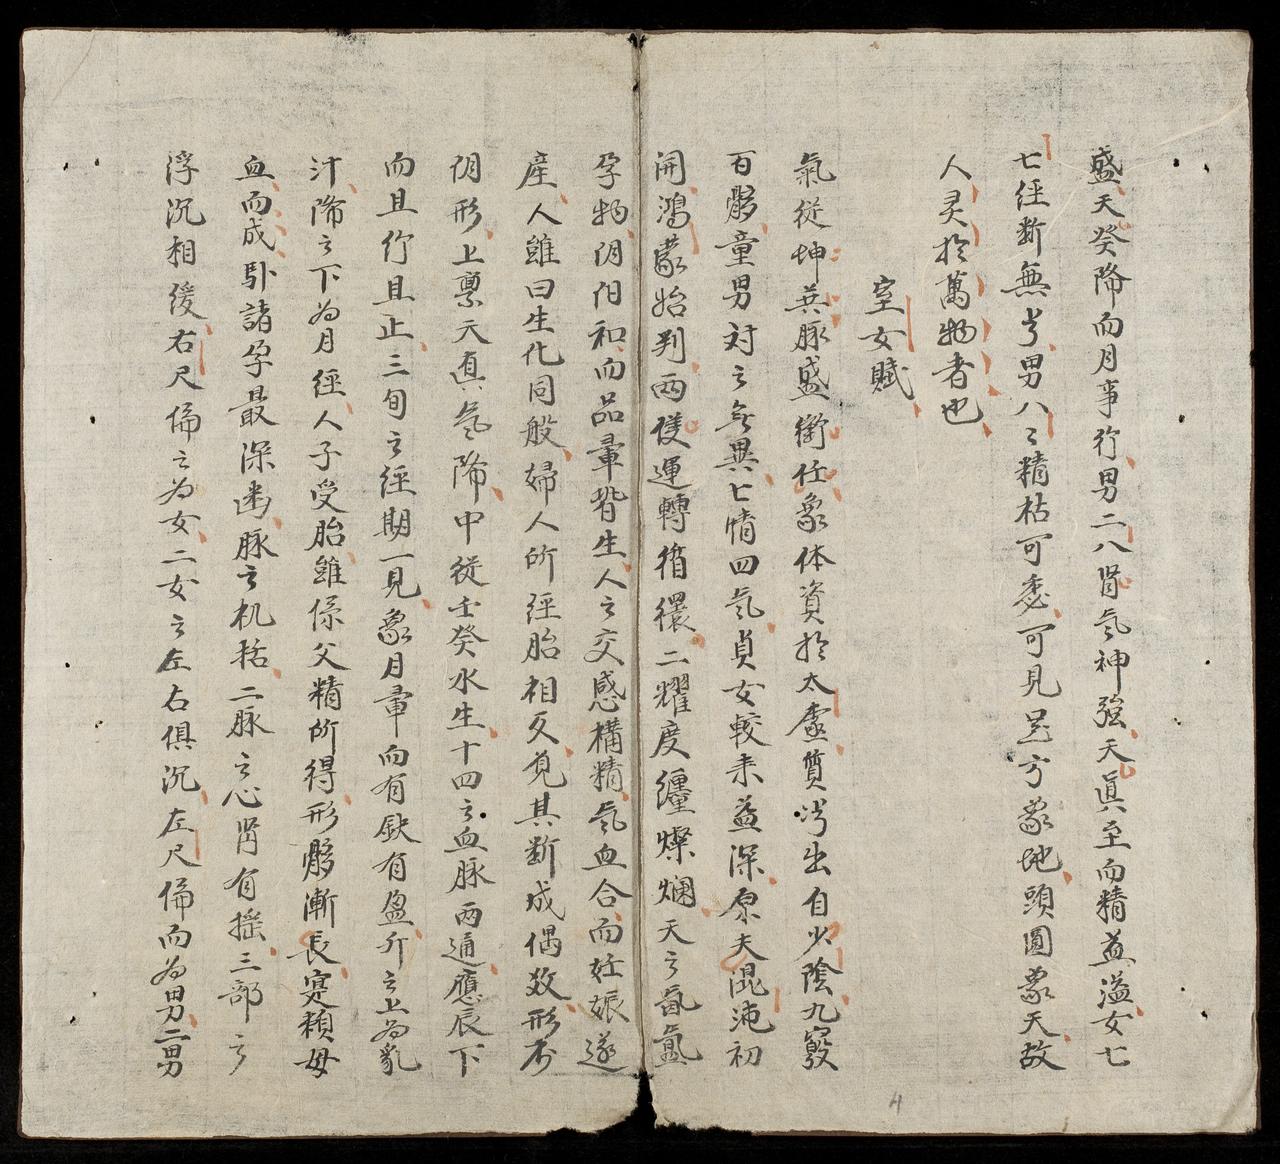 盛天癸降而月事行男二八肾气神強天真至而精益溢女七
七经断無岁男八〻精枯可委可見足方象地頭圓象天故
人灵於萬物者也
室女賦
氣從坤兵脉盛衝任象体資於太虚質岁出自少陰九竅
百骸童男対之無異七情四气貞女較来益深原夫混沌初
開鴻蒙始判两儀運轉循環二耀度纏燦爛天之氤氳
孕物阴阳和而品彙皆生人之交感構精气血合而妊娠遂
産人雖曰生化同般婦人所經胎相反覓其断成偶效形不
阴形上禀天真气降中従壬癸水生十四之血脉两通應辰下
而且行且止三旬之經期一見象月暈而有缺有盈升之上為乳
汁降之下為月經人子受胎雖係父精所得形骸漸長寔頼母
血而成卧諸孕最深幽脉之机括二脉之心肾有摇三部之
浮沉相缓右尺偏之為女二女之左右俱沉左尺偏而為男二男
4